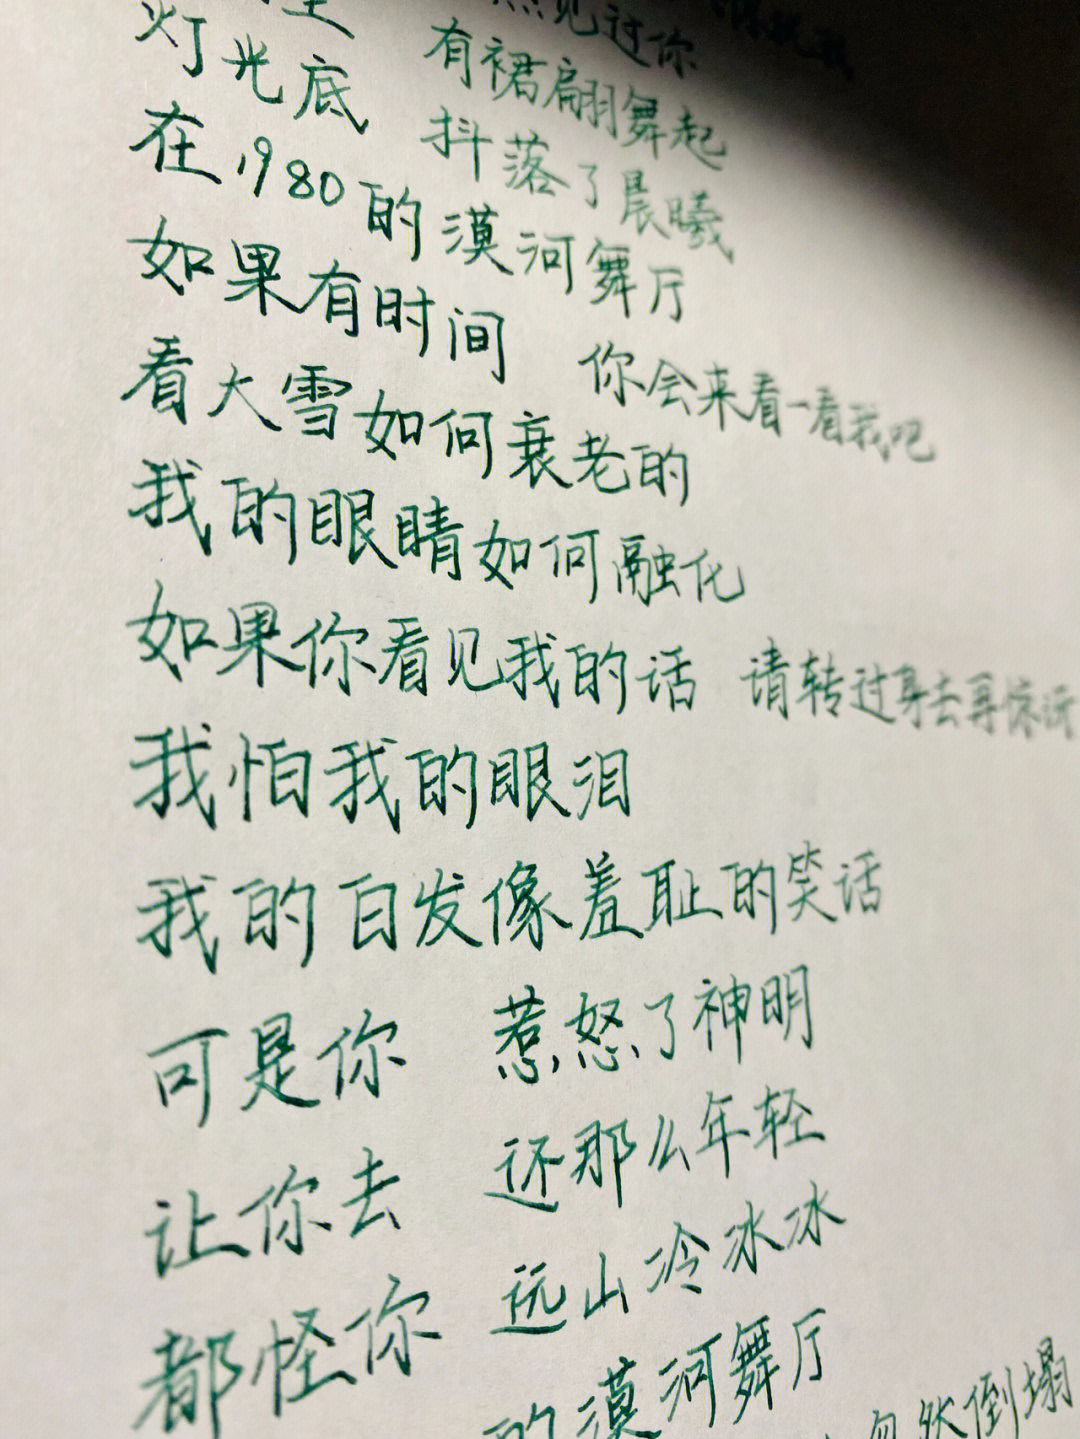 见过你
灯光底 有裙翩翩舞起
抖落了晨曦
在1980的漠河舞厅
如果有时间 你会来看一看我吧
看大雪如何衰老的
我的眼睛如何融化
如果你看见我的话 请转过身去再惊讶
我怕我的眼泪
我的白发像羞耻的笑话
可是你 惹怒了神明
让你去 还那么年轻
都怪你 远山冷冰冰
的漠河舞厅
忽然倒塌